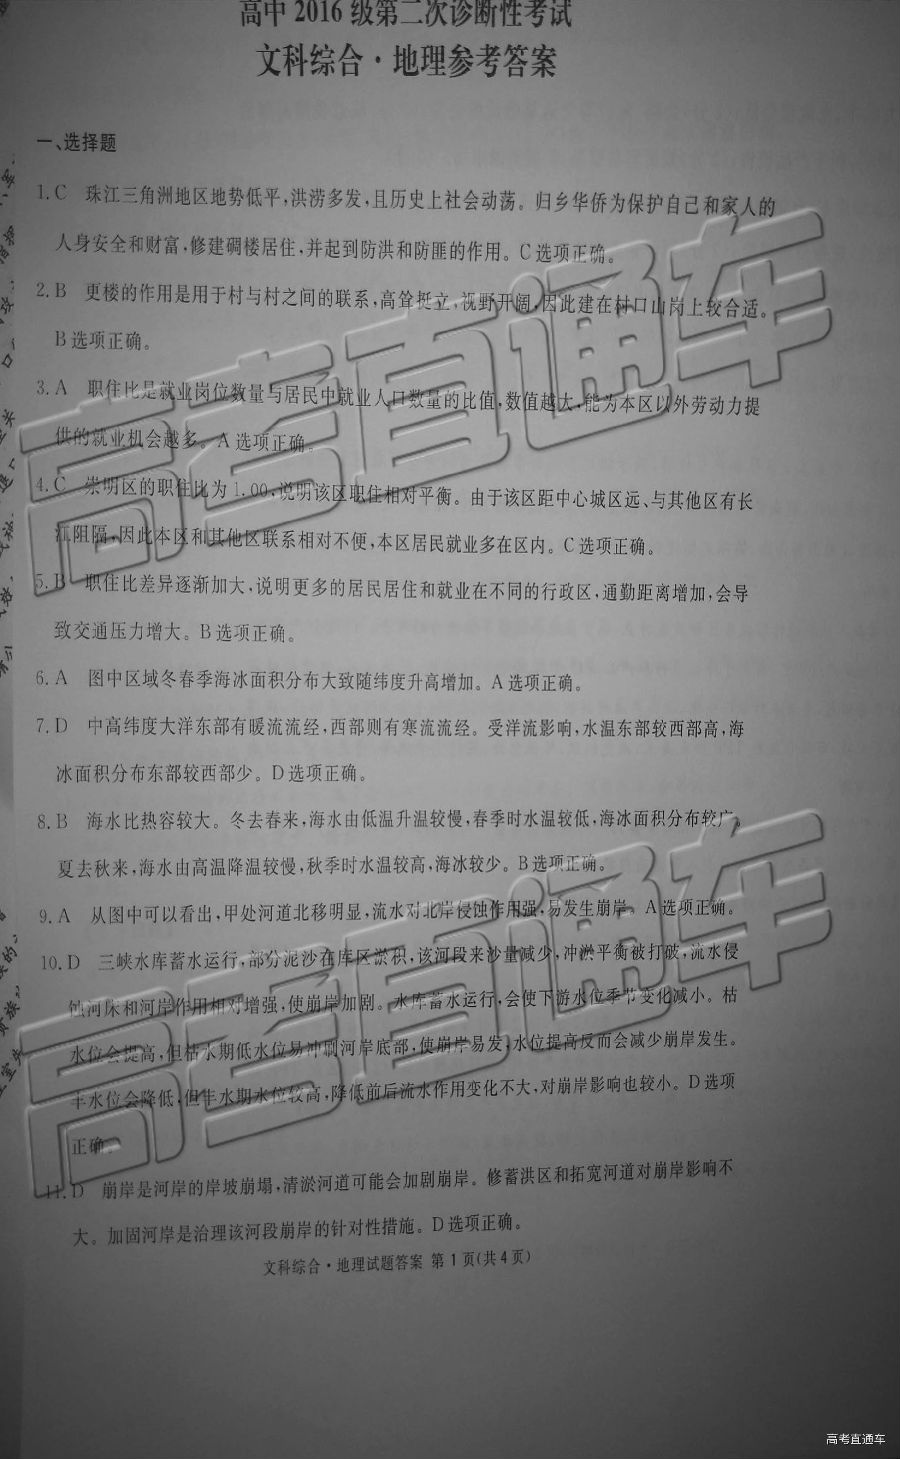 高中 2016 级第二次诊断性考试
文科综合·地理参考答案
一、选择题
1.C 珠江三角洲地区地势低平,洪涝多发,且历史上社会动荡。归乡华侨为保护自己和家人的
人身安全和财富,修建碉楼居住,并起到防洪和防匪的作用。C选项正确。
2.B 更楼的作用是用于村与村之间的联系,高耸挺立,视野开阔,因此建在村口山岗上较合适。
B选项正确。
3.A 职住比是就业岗位数量与居民中就业人口数量的比值,数值越大,能为本区以外劳动力提
供的就业机会越多。A选项正确。
4.C 崇明区的职住比为 1.00,说明该区职住相对平衡。由于该区距中心城区远、与其他区有长
江阻隔,因此本区和其他区联系相对不便,本区居民就业多在区内。C选项正确。
5.B 职住比差异逐渐加大,说明更多的居民居住和就业在不同的行政区,通勤距离增加,会导
致交通压力增大。B选项正确。
6.A 图中区域冬春季海冰面积分布大致随纬度升高增加。A选项正确。
7.D 中高纬度大洋东部有暖流流经,西部则有寒流流经。受洋流影响,水温东部较西部高,海
冰面积分布东部较西部少。D选项正确。
8.B 海水比热容较大。冬去春来,海水由低温升温较慢,春季时水温较低,海冰面积分布较广。
夏去秋来,海水由高温降温较慢,秋季时水温较高,海冰较少。B选项正确。
9.A 从图中可以看出,甲处河道北移明显,流水对北岸侵蚀作用强,易发生崩岸。A选项正确。
10.D 三峡水库蓄水运行,部分泥沙在库区淤积,该河段来沙量减少,冲淤平衡被打破,流水侵
蚀河床和河岸作用相对增强,使崩岸加剧。水库蓄水运行,会使下游水位季节变化减小。枯
水位会提高,但枯水期低水位易冲刷河岸底部,使崩岸易发,水位提高反而会减少崩岸发生。
丰水位会降低,但丰水期水位较高,降低前后流水作用变化不大,对崩岸影响也较小。D选项
正确。
11.D 崩岸是河岸的岸坡崩塌,清淤河道可能会加剧崩岸。修蓄洪区和拓宽河道对崩岸影响不
大。加固河岸是治理该河段崩岸的针对性措施。D选项正确。
文科综合·地理试题答案 第 1 页(共 4 页)
高考直通车
高考直通车
高考直通车